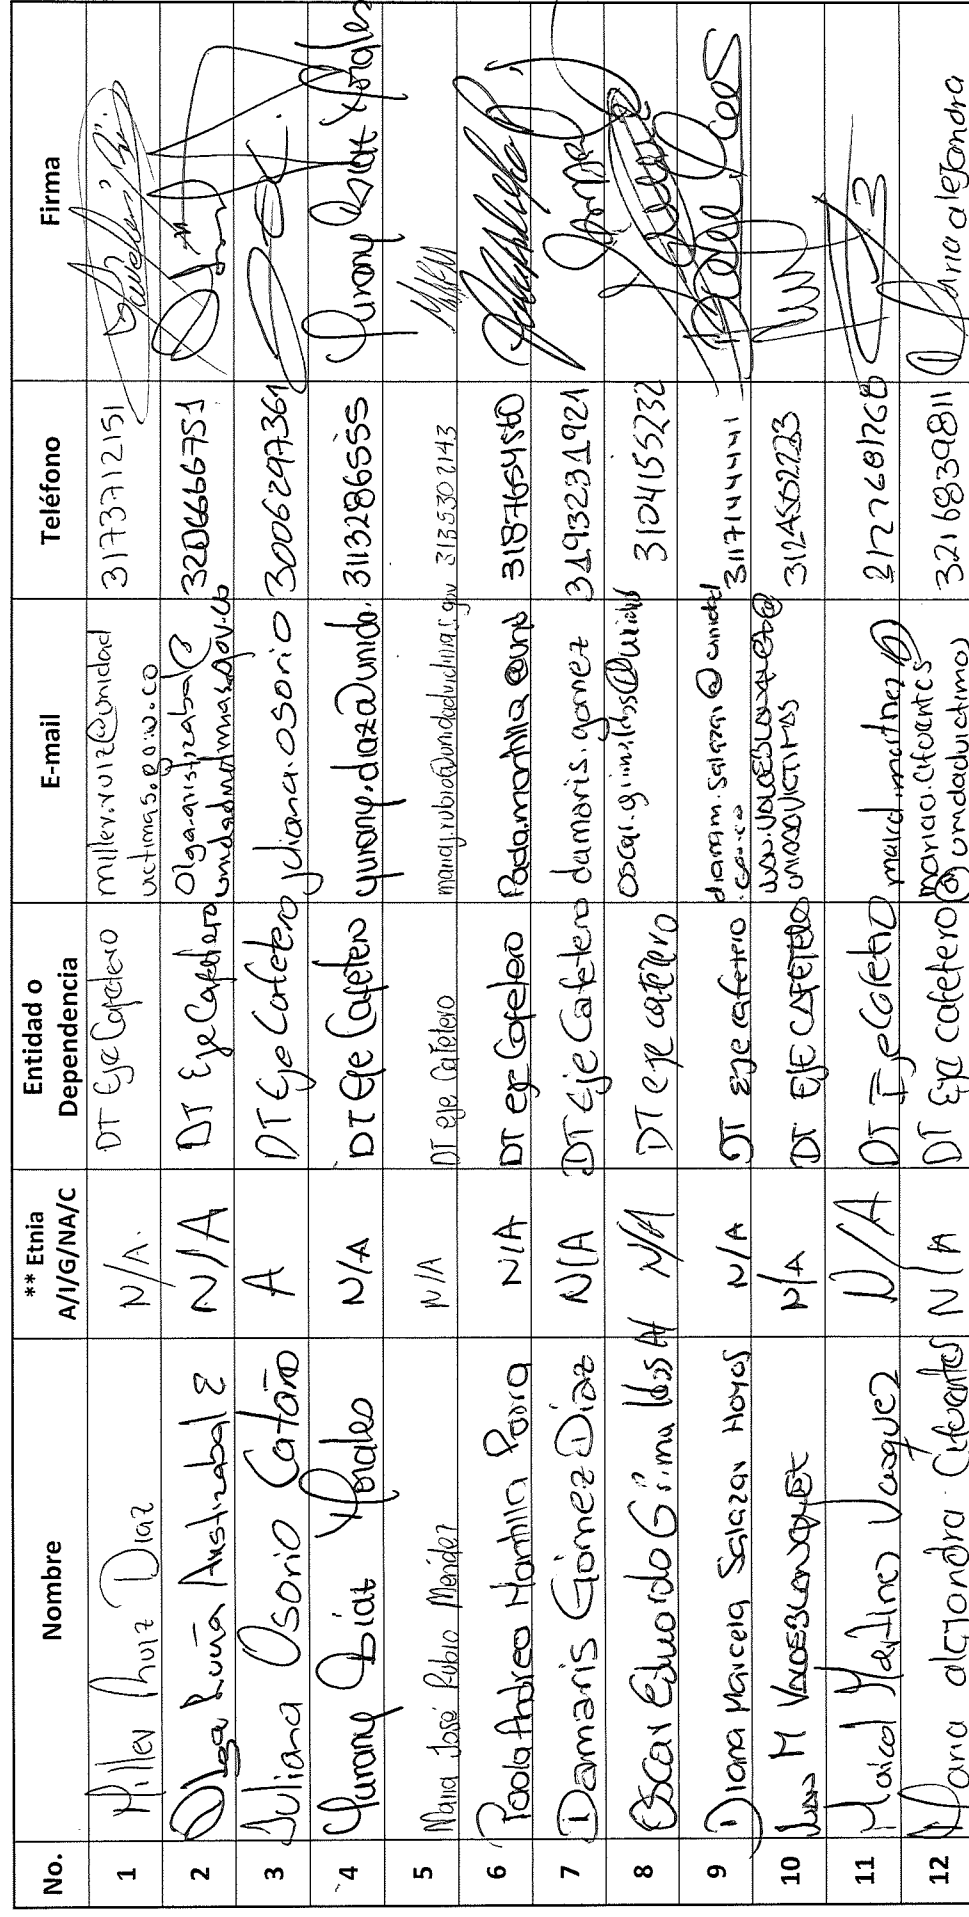 No. Nombre ** Etnia A/I/G/NA/C Entidad o Dependencia E-mail Teléfono Firma
1 Miller Ruiz Diaz N/A. DT Eje Cafetero miller.ruiz@unidad victimas.gov.co 3173712151
2 Olga Lucía Aristizabal E N/A DT Eje Cafetero olga.aristizabal@ unidadvictimas.gov.co 3206666751
3 Juliana Osorio Cataño A DT Eje Cafetero juliana.osorio 3006297361
4 Yurany Diaz Morales N/A DT Eje Cafetero yurany.diaz@unida. 3113286555 Yurany Diaz Morales
5 Maria José Rubio Mendez N/A DT eje Cafetero mariaj.rubio@unidadvictimas.gov 3135302143
6 Paola Andrea Mantilla Parra N/A DT eje Cafetero Paola.mantilla@unid 3187654560
7 Damaris Gómez Díaz N/A DT Eje Cafetero damaris.gomez 3193231921
8 Oscar Eduardo Grimaldos N/A DT eje cafetero oscar.grimaldos@unidad 3104155232
9 Diana Marcela Salazar Hoyos N/A DT eje cafetero dianam.salazar@unidad .gov.co 3117144441
10 Juan M VALDEBLANQUEZ N/A DT EJE CAFETERO 3124502223
11 Maicol Martinez Vasquez N/A DT Eje Cafetero maicol.martinez@ 3127681268
12 Maria alejandra Cifuentes N/A DT Eje cafetero maria.cifuentes @unidadvictimas 3216839811 Maria alejandra